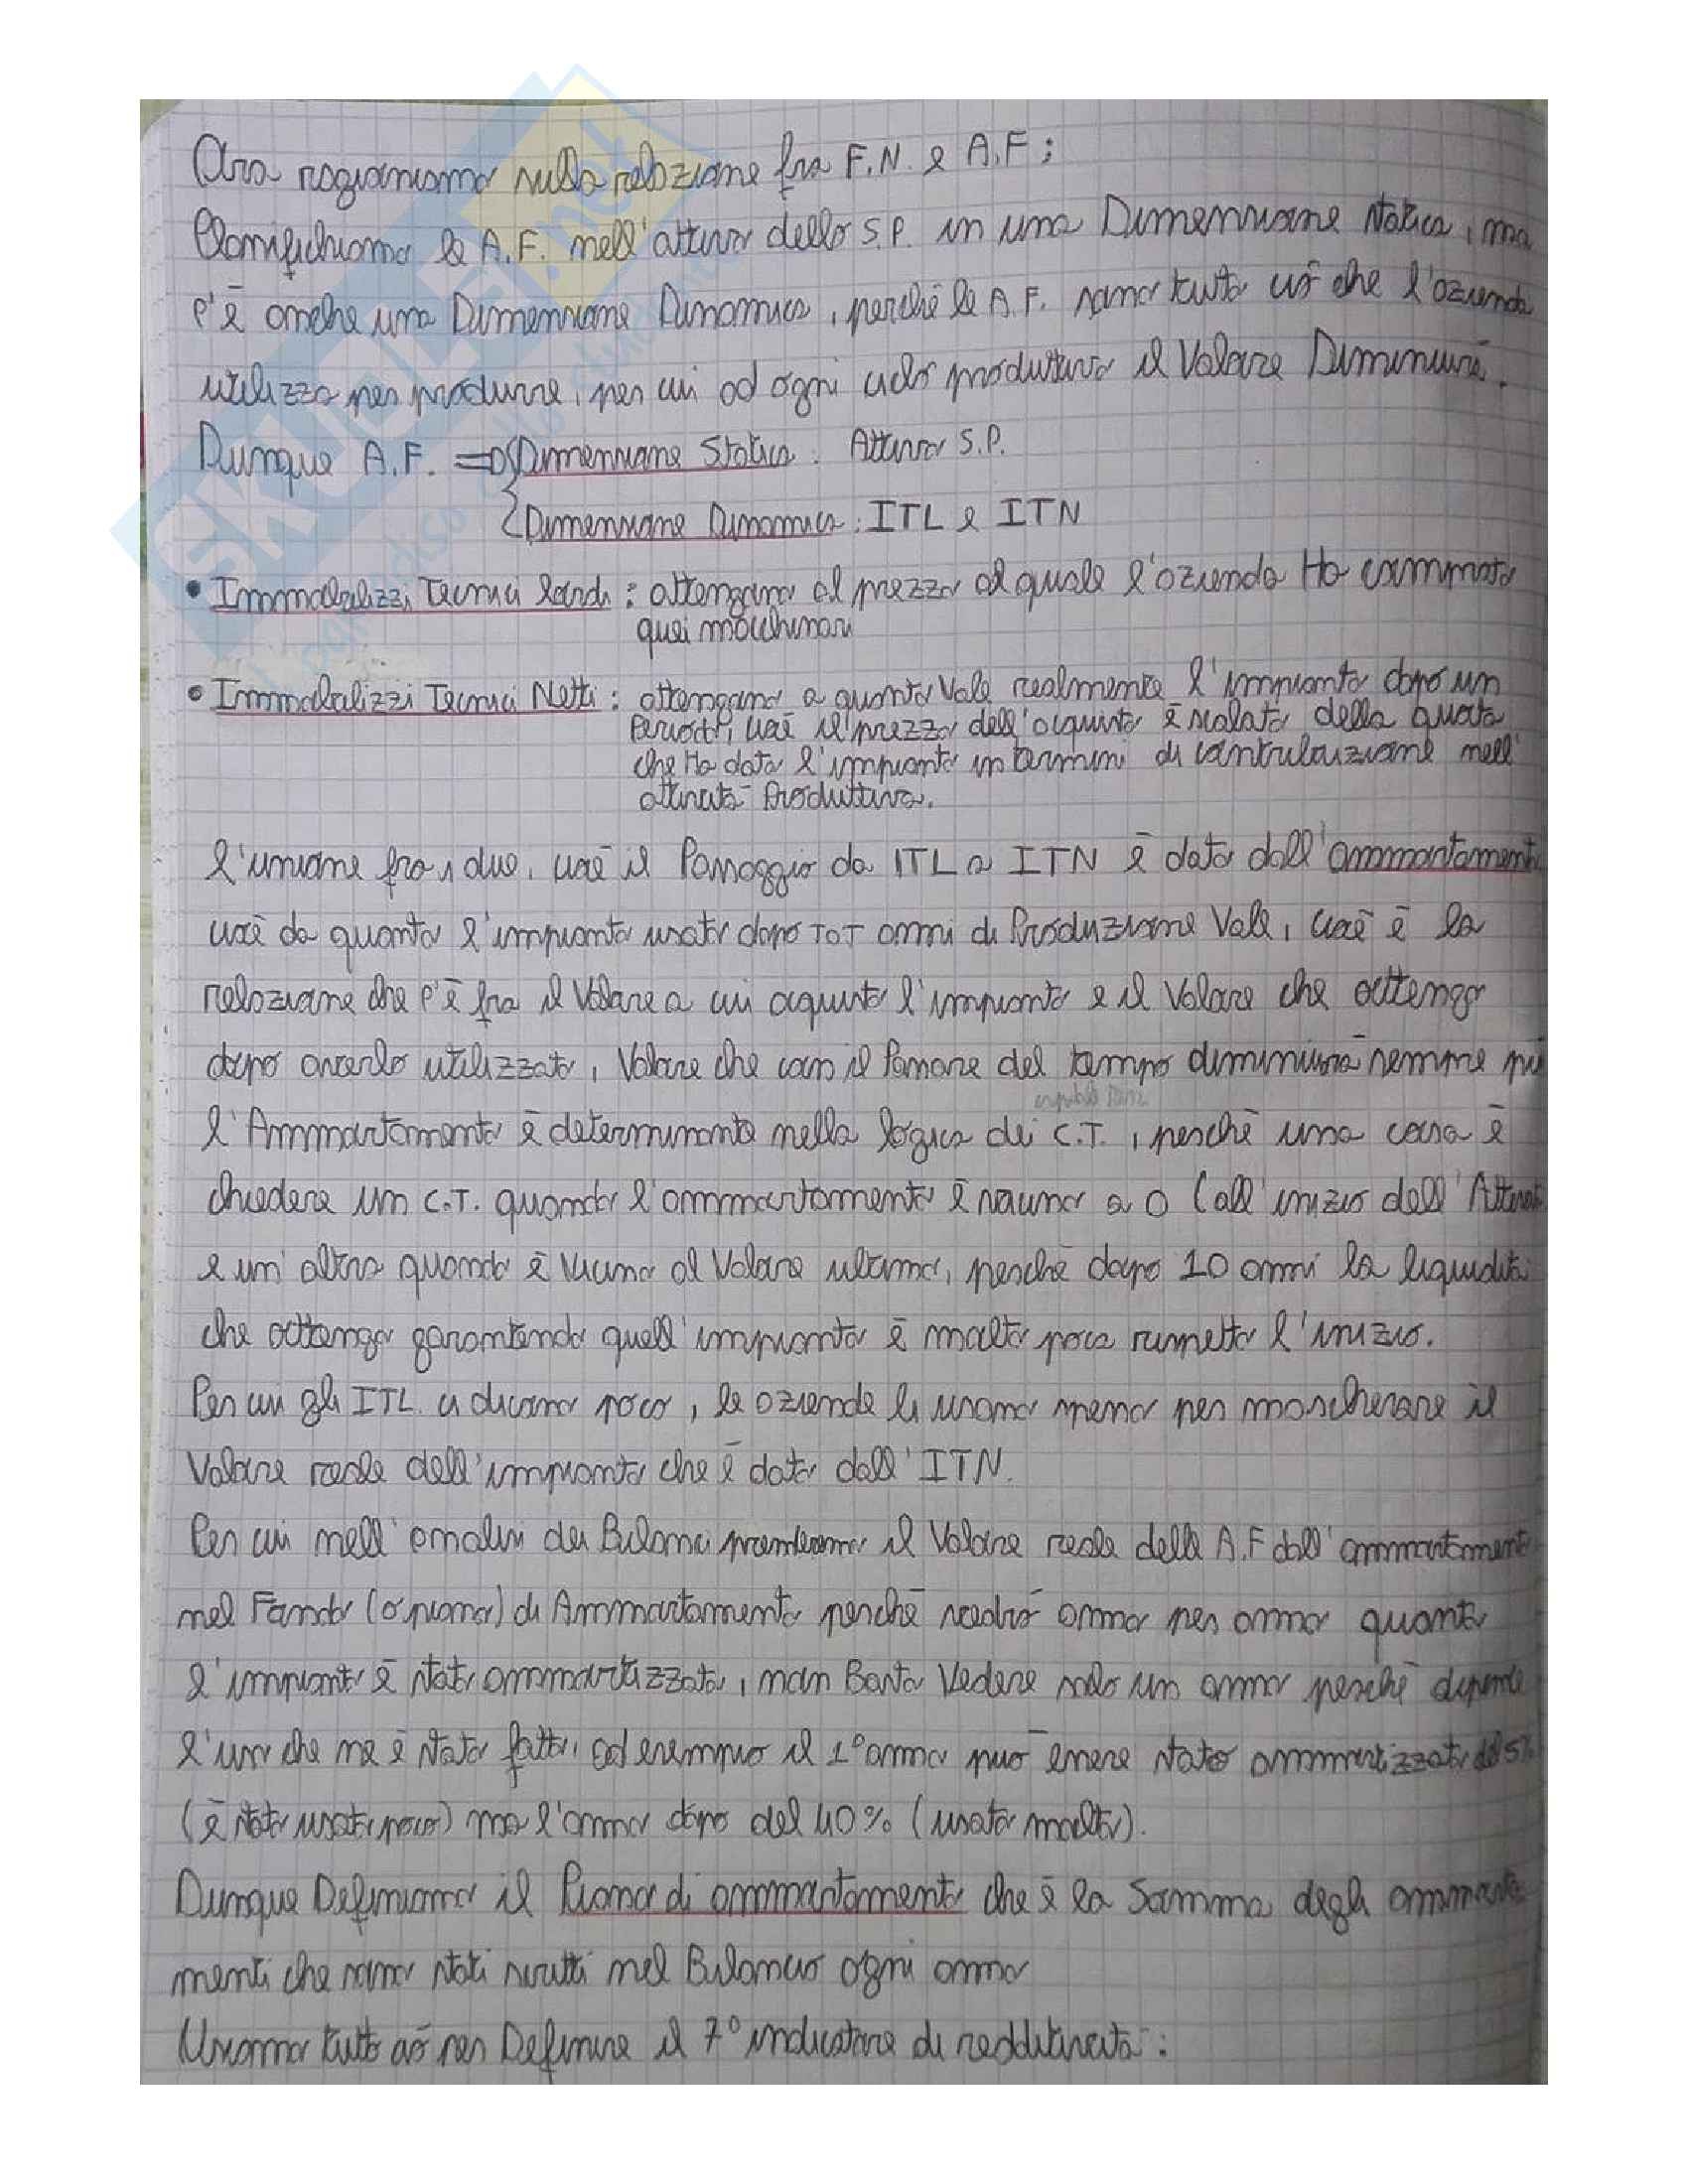 Ora ragioniamo sulla relazione fra F.N. e A.F :
Classifichiamo le A.F. nell'attivo dello S.P. in una Dimensione Statica, ma
c'è anche una Dimensione Dinamica, perchè le A.F. sono tutto ciò che l'azienda
utilizza per produrre, per cui ad ogni ciclo produttivo il Valore Diminuirà.
Dunque A.F. => { Dimensione Statica : Attivo S.P.
{ Dimensione Dinamica : ITL e ITN
• Immobilizzi Tecnici Lordi : attengono al prezzo al quale l'azienda Ha comprato
quei macchinari
• Immobilizzi Tecnici Netti : attengono a quanto Vale realmente l'impianto dopo un
Periodo, cioè il prezzo dell'acquisto è scalato della quota
che Ha dato l'impianto in termini di contribuzione nell'
attività Produttiva.
L'unione fra i due, cioè il Passaggio da ITL a ITN è dato dall'ammortamento
cioè da quanto l'impianto usato dopo TOT anni di Produzione Vale, cioè è la
relazione che c'è fra il Valore a cui acquisto l'impianto e il Valore che ottengo
dopo averlo utilizzato, Valore che con il Passare del tempo diminuirà sempre più
l'Ammortamento è determinante nella logica dei C.T. , perchè una cosa è
chiedere un C.T. quando l'ammortamento è vicino a 0 (all'inizio dell'Attività
e un'altra quando è Vicino al Valore ultimo, perchè dopo 10 anni la liquidità
che ottengo garantendo quell'impianto è molto poca rispetto l'inizio.
Per cui gli ITL ci dicono poco, le aziende li usano spesso per mascherare il
Valore reale dell'impianto che è dato dall'ITN.
Per cui nell'analisi dei Bilanci prenderemo il Valore reale delle A.F dall'ammortamento
nel Fondo (o piano) di Ammortamento perchè vedrò anno per anno quanto
l'impianto è stato ammortizzato, non Basta Vedere solo un anno perchè dipende
l'uso che ne è stato fatto, ad esempio il 1° anno può essere stato ammortizzato del 5%
(è stato usato poco) ma l'anno dopo del 40% (usato molto).
Dunque Definiamo il Piano di ammortamento che è la Somma degli ammorta
menti che sono stati scritti nel Bilancio ogni anno
Usiamo tutto ciò per Definire il 7° indicatore di redditività :
SKUOLA.net